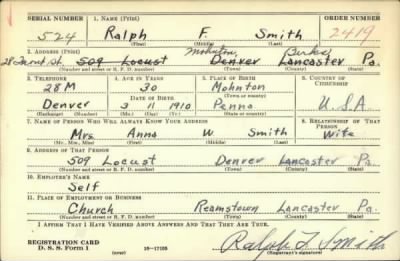 SERIAL NUMBER 1. NAME (Print) ORDER NUMBER
524 Ralph F. Smith 2419
(First) (Middle) (Last)
2. ADDRESS (Print)
Mohnton, Berks
509 Locust Denver Lancaster Pa.
(Number and street or R. F. D. number) (Town) (County) (State)
3. TELEPHONE 4. AGE IN YEARS 5. PLACE OF BIRTH 6. COUNTRY OF CITIZENSHIP
28 M 30 Mohnton
DATE OF BIRTH (Town or county)
Denver 3 11 1910 Penna U.S.A
(Exchange) (Number) (Mo.) (Day) (Yr.) (State or country)
7. NAME OF PERSON WHO WILL ALWAYS KNOW YOUR ADDRESS 8. RELATIONSHIP OF THAT PERSON
Mrs. Anna W Smith Wife
(Mr., Mrs., Miss) (First) (Middle) (Last)
9. ADDRESS OF THAT PERSON
509 Locust Denver Lancaster Pa.
(Number and street or R. F. D. number) (Town) (County) (State)
10. EMPLOYER'S NAME
Self
11. PLACE OF EMPLOYMENT OR BUSINESS
Church Reamstown Lancaster Pa.
(Number and street or R. F. D. number) (Town) (County) (State)
I AFFIRM THAT I HAVE VERIFIED ABOVE ANSWERS AND THAT THEY ARE TRUE.
REGISTRATION CARD
D. S. S. Form 1 (over) 16-17105 Ralph F. Smith
(Registrant's signature)